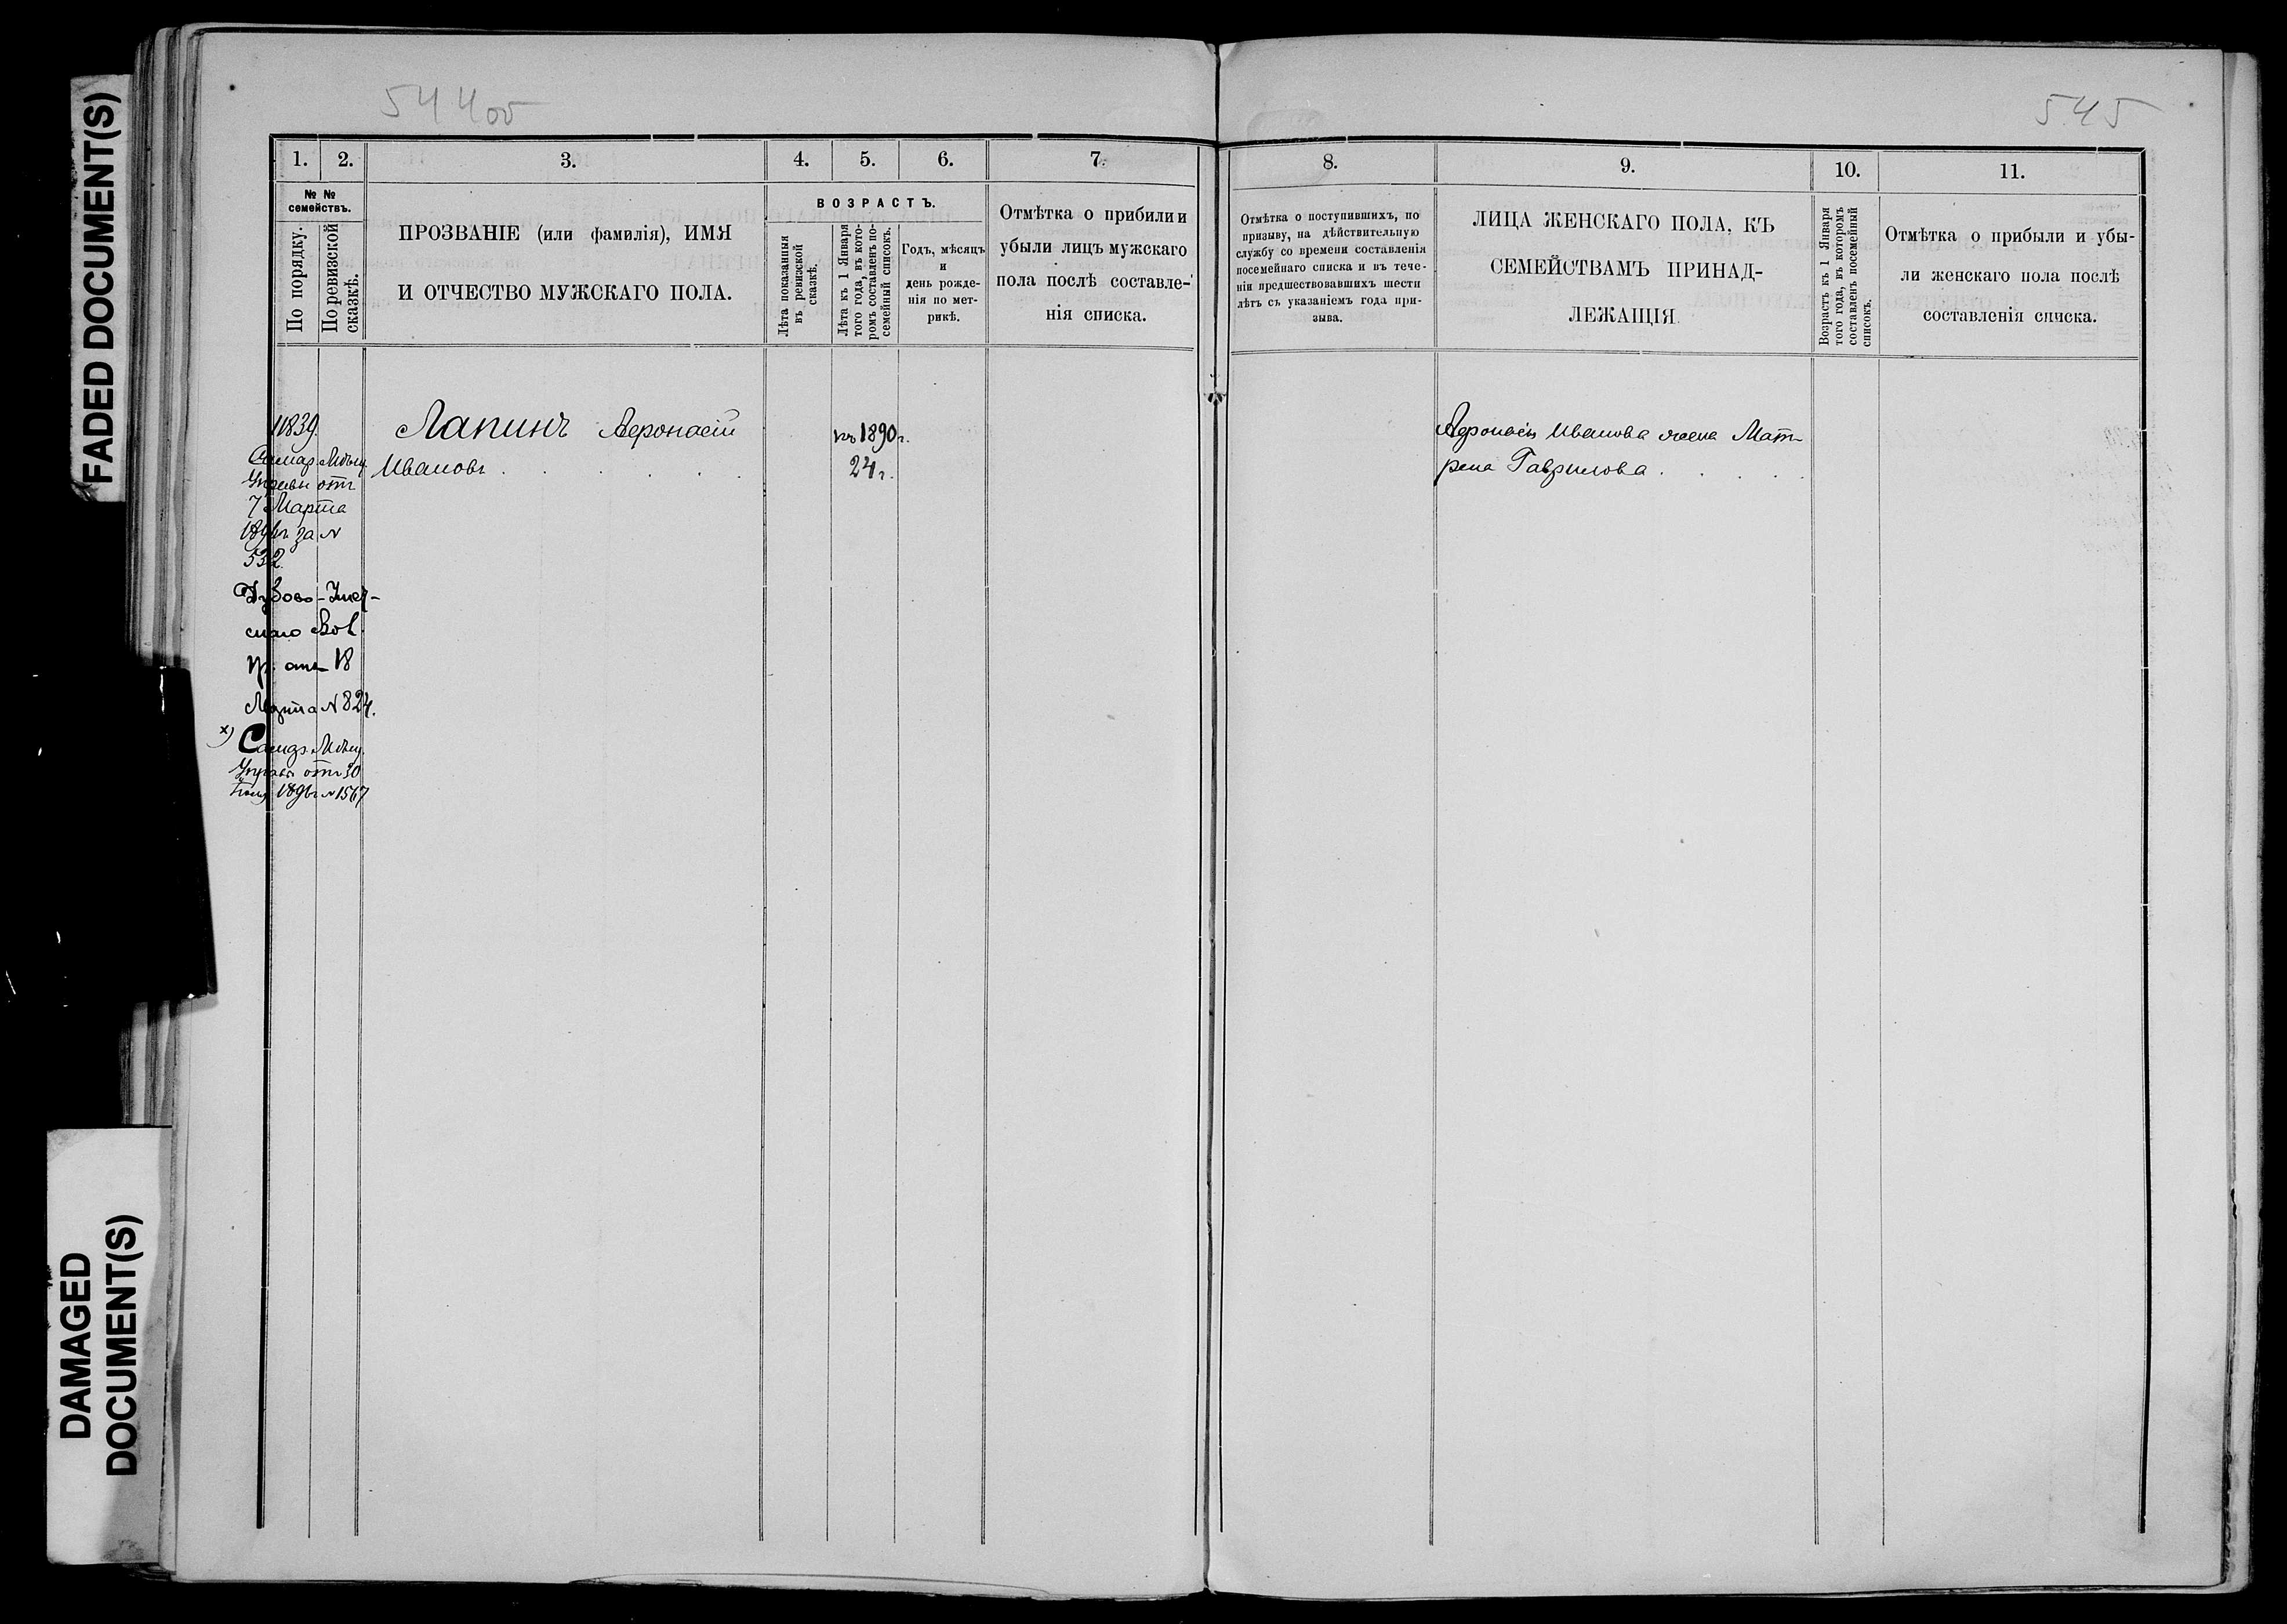 FADED DOCUMENT(S)
DAMAGED
DOCUMENT(S)
544об
1.
2.
3.
4.
5.
6.
7.
№ №
семействъ.
По порядку.
По ревизской
сказкѣ.
ПРОЗВАНІЕ (или фамилія), ИМЯ
И ОТЧЕСТВО МУЖСКАГО ПОЛА.
ВОЗРАСТЪ.
Лѣта показанныя
въ ревизской
сказкѣ.
Лѣта къ 1 Января
того года, въ кото-
ромъ составленъ по-
семейный списокъ.
Годъ, мѣсяцъ
и
день рожде-
нія по мет-
рикѣ.
Отмѣтка о прибыли и
убыли лицъ мужскаго
пола послѣ составле-
нія списка.
11839.
Самар. Мѣщ.
Управы отъ
7 Марта
за №
532
Дубово-
скаго Вол.
пр. отъ 18
Марта № 824.
х) Самар. Мѣщ.
Управы отъ 30
№ 1567
Лапинъ Афонасій
Ивановъ . . . .
къ 1890г.
24г.
545
8.
9.
10.
11.
Отмѣтка о поступившихъ, по
призыву, на дѣйствительную
службу со времени составленія
посемейнаго списка и въ тече-
ніи предшествовавшихъ шести
лѣтъ съ указаніемъ года при-
зыва.
ЛИЦА ЖЕНСКАГО ПОЛА, КЪ
СЕМЕЙСТВАМЪ ПРИНАД-
ЛЕЖАЩІЯ
Возрастъ къ 1 Января
того года, въ которомъ
составленъ посемейный
списокъ.
Отмѣтка о прибыли и убы-
ли женскаго пола послѣ
составленія списка.
Афонасія Иванова жена Мат-
рена Гаврилова . . . .